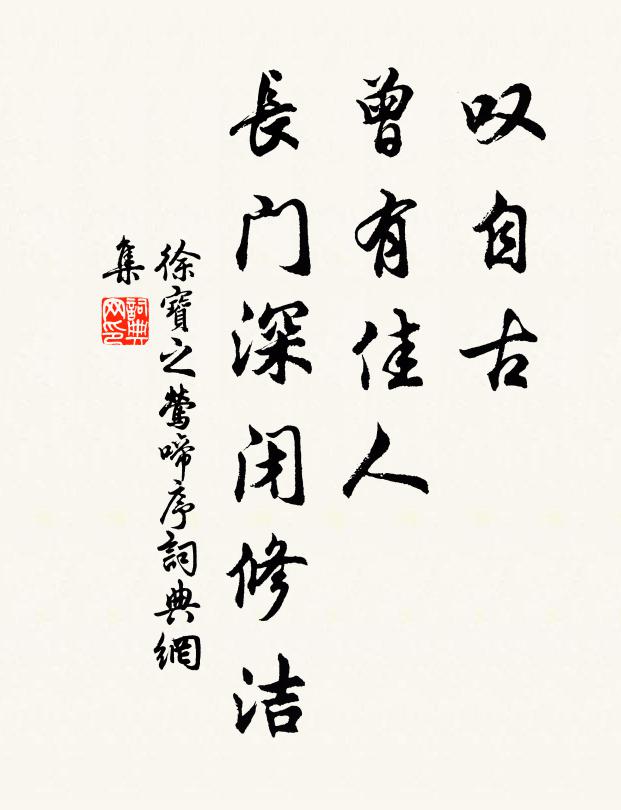 叹自古
曾有佳人
長门深闭修洁
徐寶之鶯啼序詞典網
集
詞典
网印